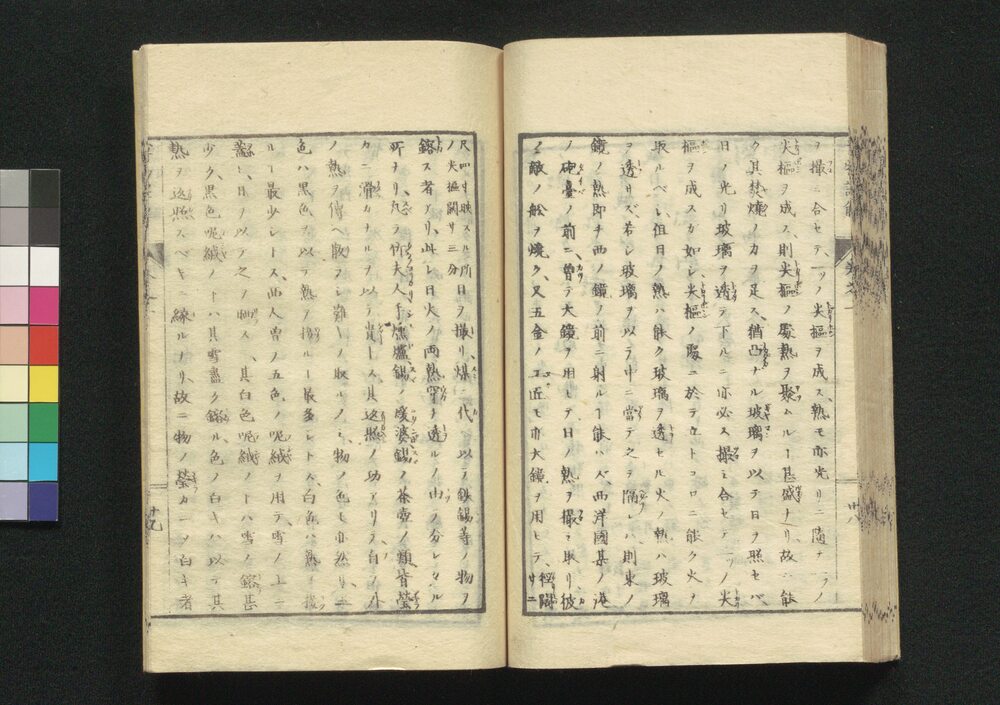 ヲ撮ミ合セテ、一ツノ尖樞ヲ成ス、熱モ亦光リニ随テ一ツノ
尖樞ヲ成ス、則尖樞ノ處熱ヲ聚ムルヿ甚盛ナリ、故ニ能
ク其焚燒ノ力ヲ足ス、猶凸ナル玻璃ヲ以テ日ヲ照セバ、
日ノ光リ玻璃ヲ透テ下ルニ亦必ス撮ミ合セテ一ツノ尖
樞ヲ成スガ如シ、尖樞ノ處ニ於テ立トコロニ能ク火ヲ
取ルベシ、但日ノ熱ハ能ク玻璃ヲ透セル火ノ熱ハ玻璃
ヲ透リズ、若シ玻璃ヲ以テ中ニ當テ之ヲ隔レハ、則東ノ
鏡ノ熱即チ西ノ鏡ノ前ニ射ルヿ能ハズ、西洋國某ノ海
ノ砲臺ノ前ニ曽テ大鏡ヲ用ヒテ日ノ熱ヲ撮テ取リ彼
ノ敵ノ舩ヲ燒ク、又五金ノ工匠モ亦大鏡ヲ用ヒテ、徑濶サ二
廿八
尺四寸映スル所日ヲ撮リ、煤ニ代ヘ以テ鉄錫等ノ物ヲ
ノ尖樞闊サ三分
鎔ス者アリ、此レ日火ノ両熱
透ルノ由ノ分レタル
所ナリ、凡ソ所夫人手燻爐錫ノ噗婆錫ノ茶壺ノ類皆瑩
カニ滑カナルヲ以テ貴トス、其返照ノ功アリテ自ノ外
ノ熱ヲ傳ヘ散シ難ノ取ルノミ、物ノ色モ亦然リ、
色ハ黒色ヲ以テ熱ヲ撥ルヿ最多シトス、白色ハ熱ヲ撥
ルヿ最少シトス、西人曽ノ五色ノ呢絨ヲ用テ、雪ノ上ニ
翻ヘ、日ヲ以テ之ヲ晒ス、其白色呢絨ノ下ハ雪ノ鎔甚
少ク、黒色呢絨ノ下ハ其雪盡ク鎔ル、色ノ白キハ以テ其
熱ヲ返照スベキニ縁ルノリ、故ニ物ノ瑩カニヲ白キ者
十九